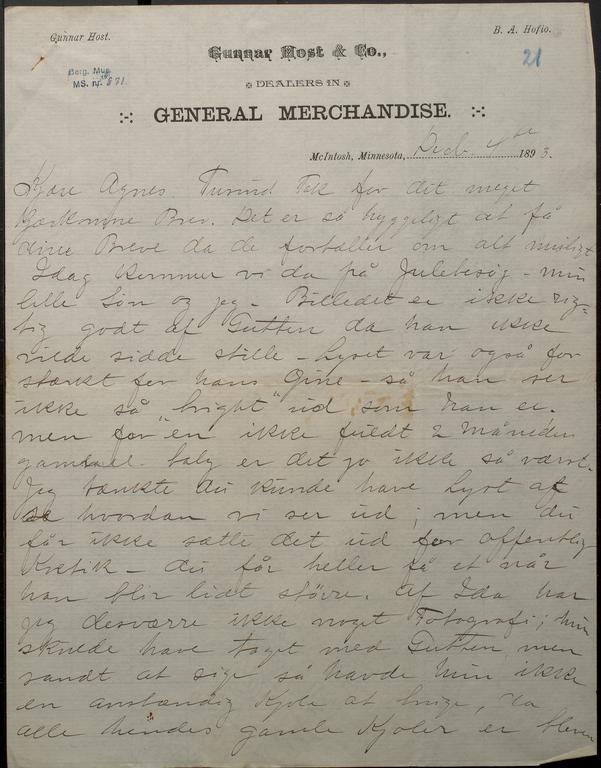 Gunnar Host.
B. A. Hofto.
Gunnar Host & Co.,
21
Berg. Mus.
MS. nr. 871.
DEALERS IN
GENERAL MERCHANDISE.
McIntosh, Minnesota, Decb. 4de 1893.
Kjære Agnes. Tusind Tak for dit meget
kjærkomne Brev. Det er så hyggeligt at få
dine Breve da de fortæller om alt muligt
Idag kommer vi da på Julebesøg - min
lille Søn og jeg. Billedet er ikke rig-
tig godt af Gutten da han ikke
vilde sidde stille - Lyset var også for
stærkt for hans Øine - så han ser
ikke så "bright" ud som han er.
men for en ikke fuldt 2 måneder
gammel er det jo ikke så værst.
Jeg tænkte du kunde have Lyst af
se hvordan vi ser ud; men du
får ikke sætte det ud for offentlig
Kritik - du får heller få et når
han blir lidt større. Af Ida har
jeg desværre ikke noget Fotografi; hun
skulde have taget med Gutten, men
sandt at sige så havde hun ikke
en anstændig Kjole at bruge, da
alle hendes gamle Kjoler er bleven